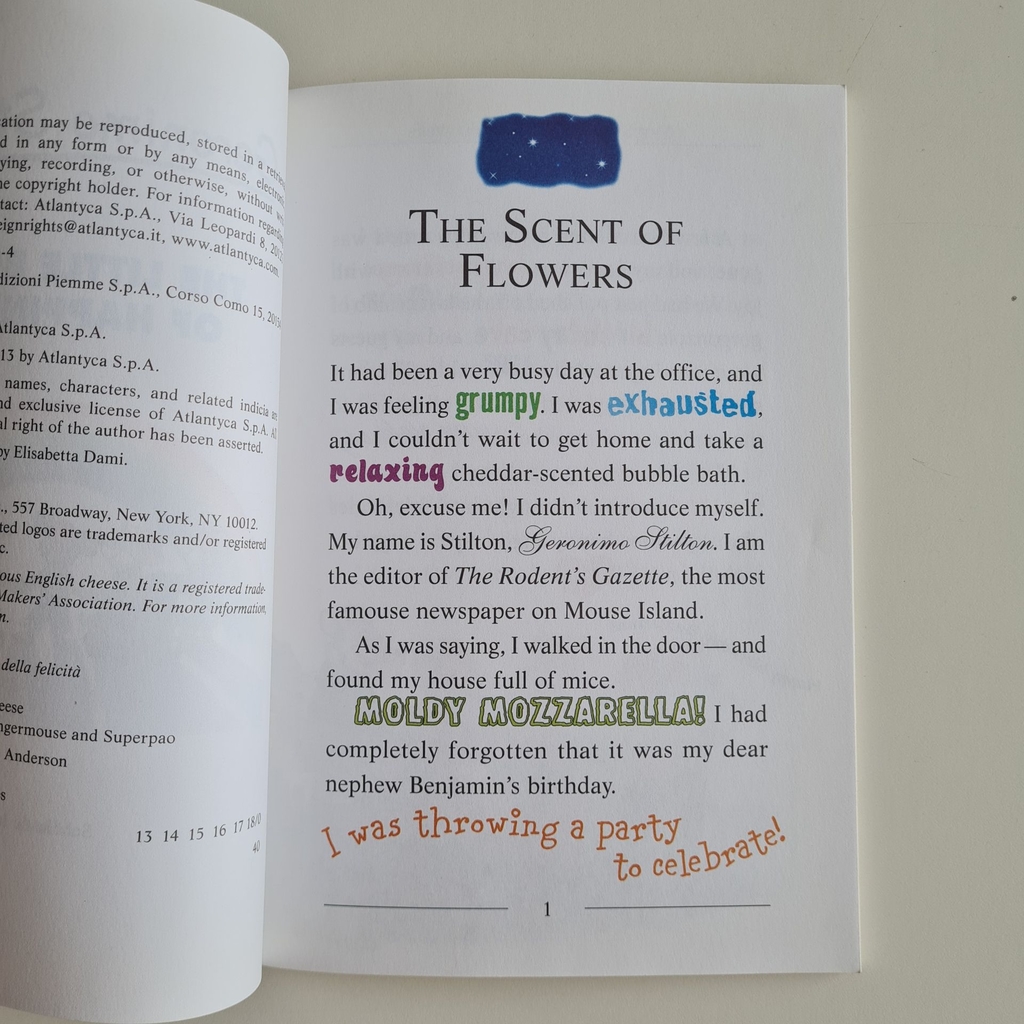 ation may be reproduced, stored in a
d in any form or by any means,
ying, recording, or otherwise, without
e copyright holder. For information
tact: Atlantyca S.p.A., Via Leopardi 8,
eignrights@atlantyca.it, www.atlantyca.com.
-4
dizioni Piemme S.p.A., Corso Como 15,
Atlantyca S.p.A.
13 by Atlantyca S.p.A.
names, characters, and related indicia
nd exclusive license of Atlantyca S.p.A.
al right of the author has been asserted.
by Elisabetta Dami.
., 557 Broadway, New York, NY 10012.
ted logos are trademarks and/or registered
c.
ous English cheese. It is a registered trade-
Makers' Association. For more information,
m.
della felicità
eese
ngermouse and Superpao
Anderson
s
13 14 15 16 17 18/0
40
THE SCENT OF
FLOWERS
It had been a very busy day at the office, and
I was feeling grumpy. I was exhausted,
and I couldn't wait to get home and take a
relaxing cheddar-scented bubble bath.
Oh, excuse me! I didn't introduce myself.
My name is Stilton, Geronimo Stilton. I am
the editor of The Rodent's Gazette, the most
famouse newspaper on Mouse Island.
As I was saying, I walked in the door — and
found my house full of mice.
MOLDY MOZZARELLA! I had
completely forgotten that it was my dear
nephew Benjamin's birthday.
I was throwing a party
to celebrate!
1